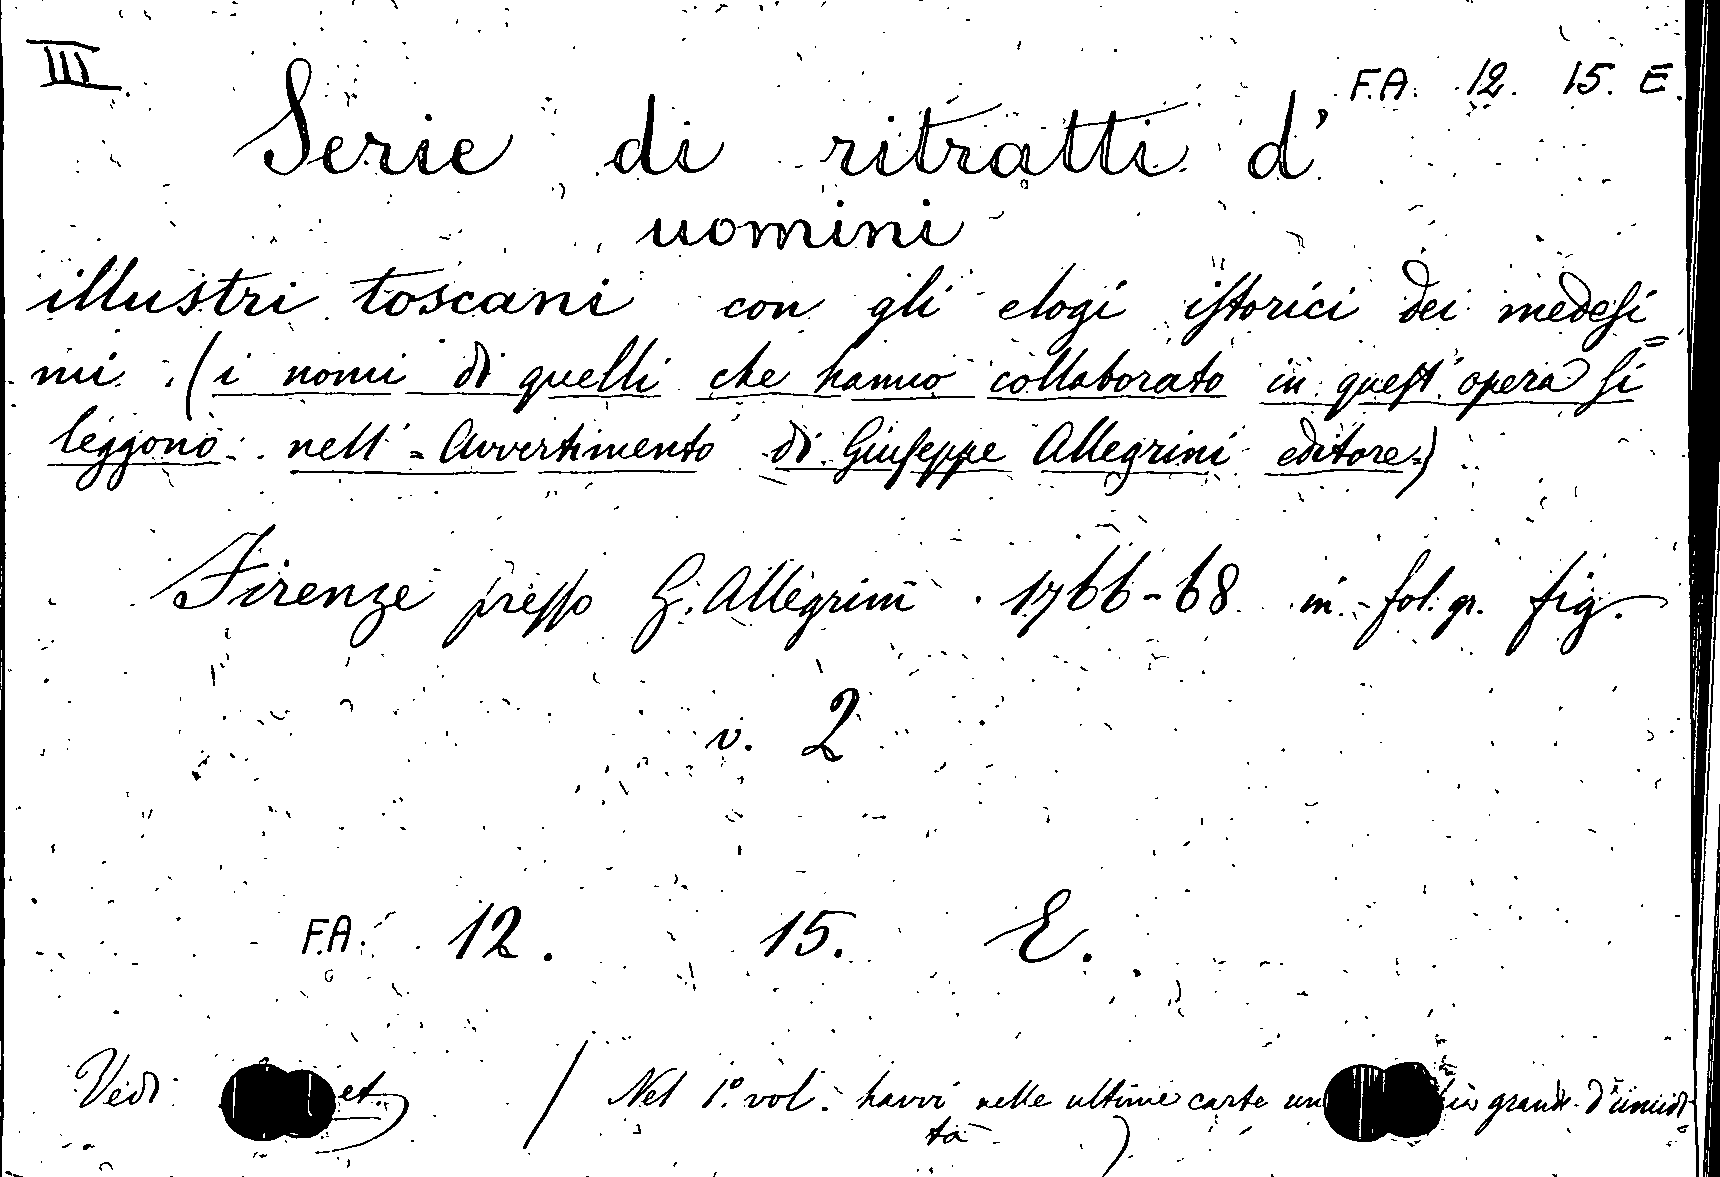 III
F.A. 12. 15. E.
Serie di ritratti d'
uomini
illustri toscani con gli elogi istorici dei medesi=
mi. (i nomi di quelli che hanno collaborato in quest'opera si
leggono nell'-Avvertimento di Giuseppe Allegrini editore-)
Firenze presso G. Allegrini 1766-68 in-fol. gr. fig.
v. 2
F.A. 12. 15. E.
Vedi
/ Nel 1.° vol. havvi nelle ultime carte un grande d'umidi
tà